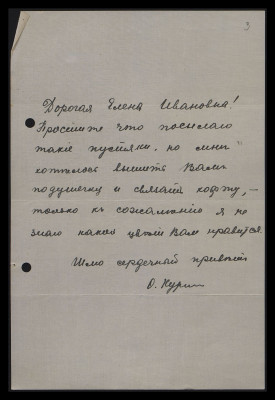 3
Дорогая Елена Ивановна!
Простите что посылаю
такіе пустяки, но мнѣ
хотѣлось вышить Вамъ
подушечку и связать кофту, –
только къ сожалѣнію я не
знаю какой цвѣтъ Вам нравится.
Шлю сердечный привѣтъ
О.